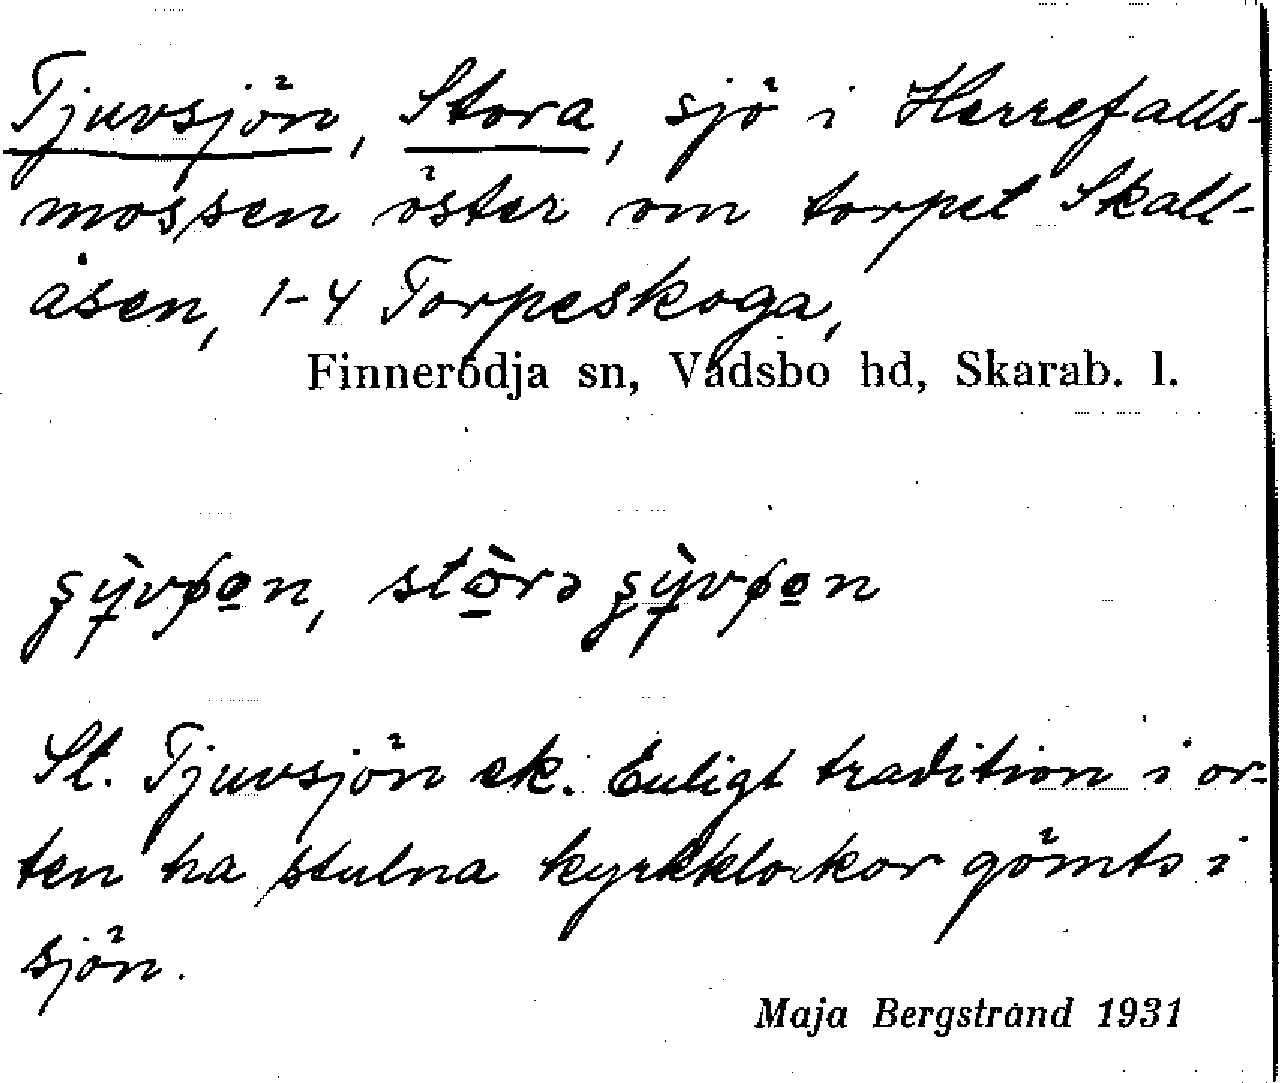 Tjuvsjön, Stora, sjö i Herrefalls-
mossen öster om torpet Skall-
åsen, 1-4 Torpeskoga,
Finnerödja sn, Vadsbo hd, Skarab. l.
St. Tjuvsjön ek. Enligt tradition i or-
ten ha stulna kyrkklockor gömts i
sjön.
Maja Bergstrand 1931